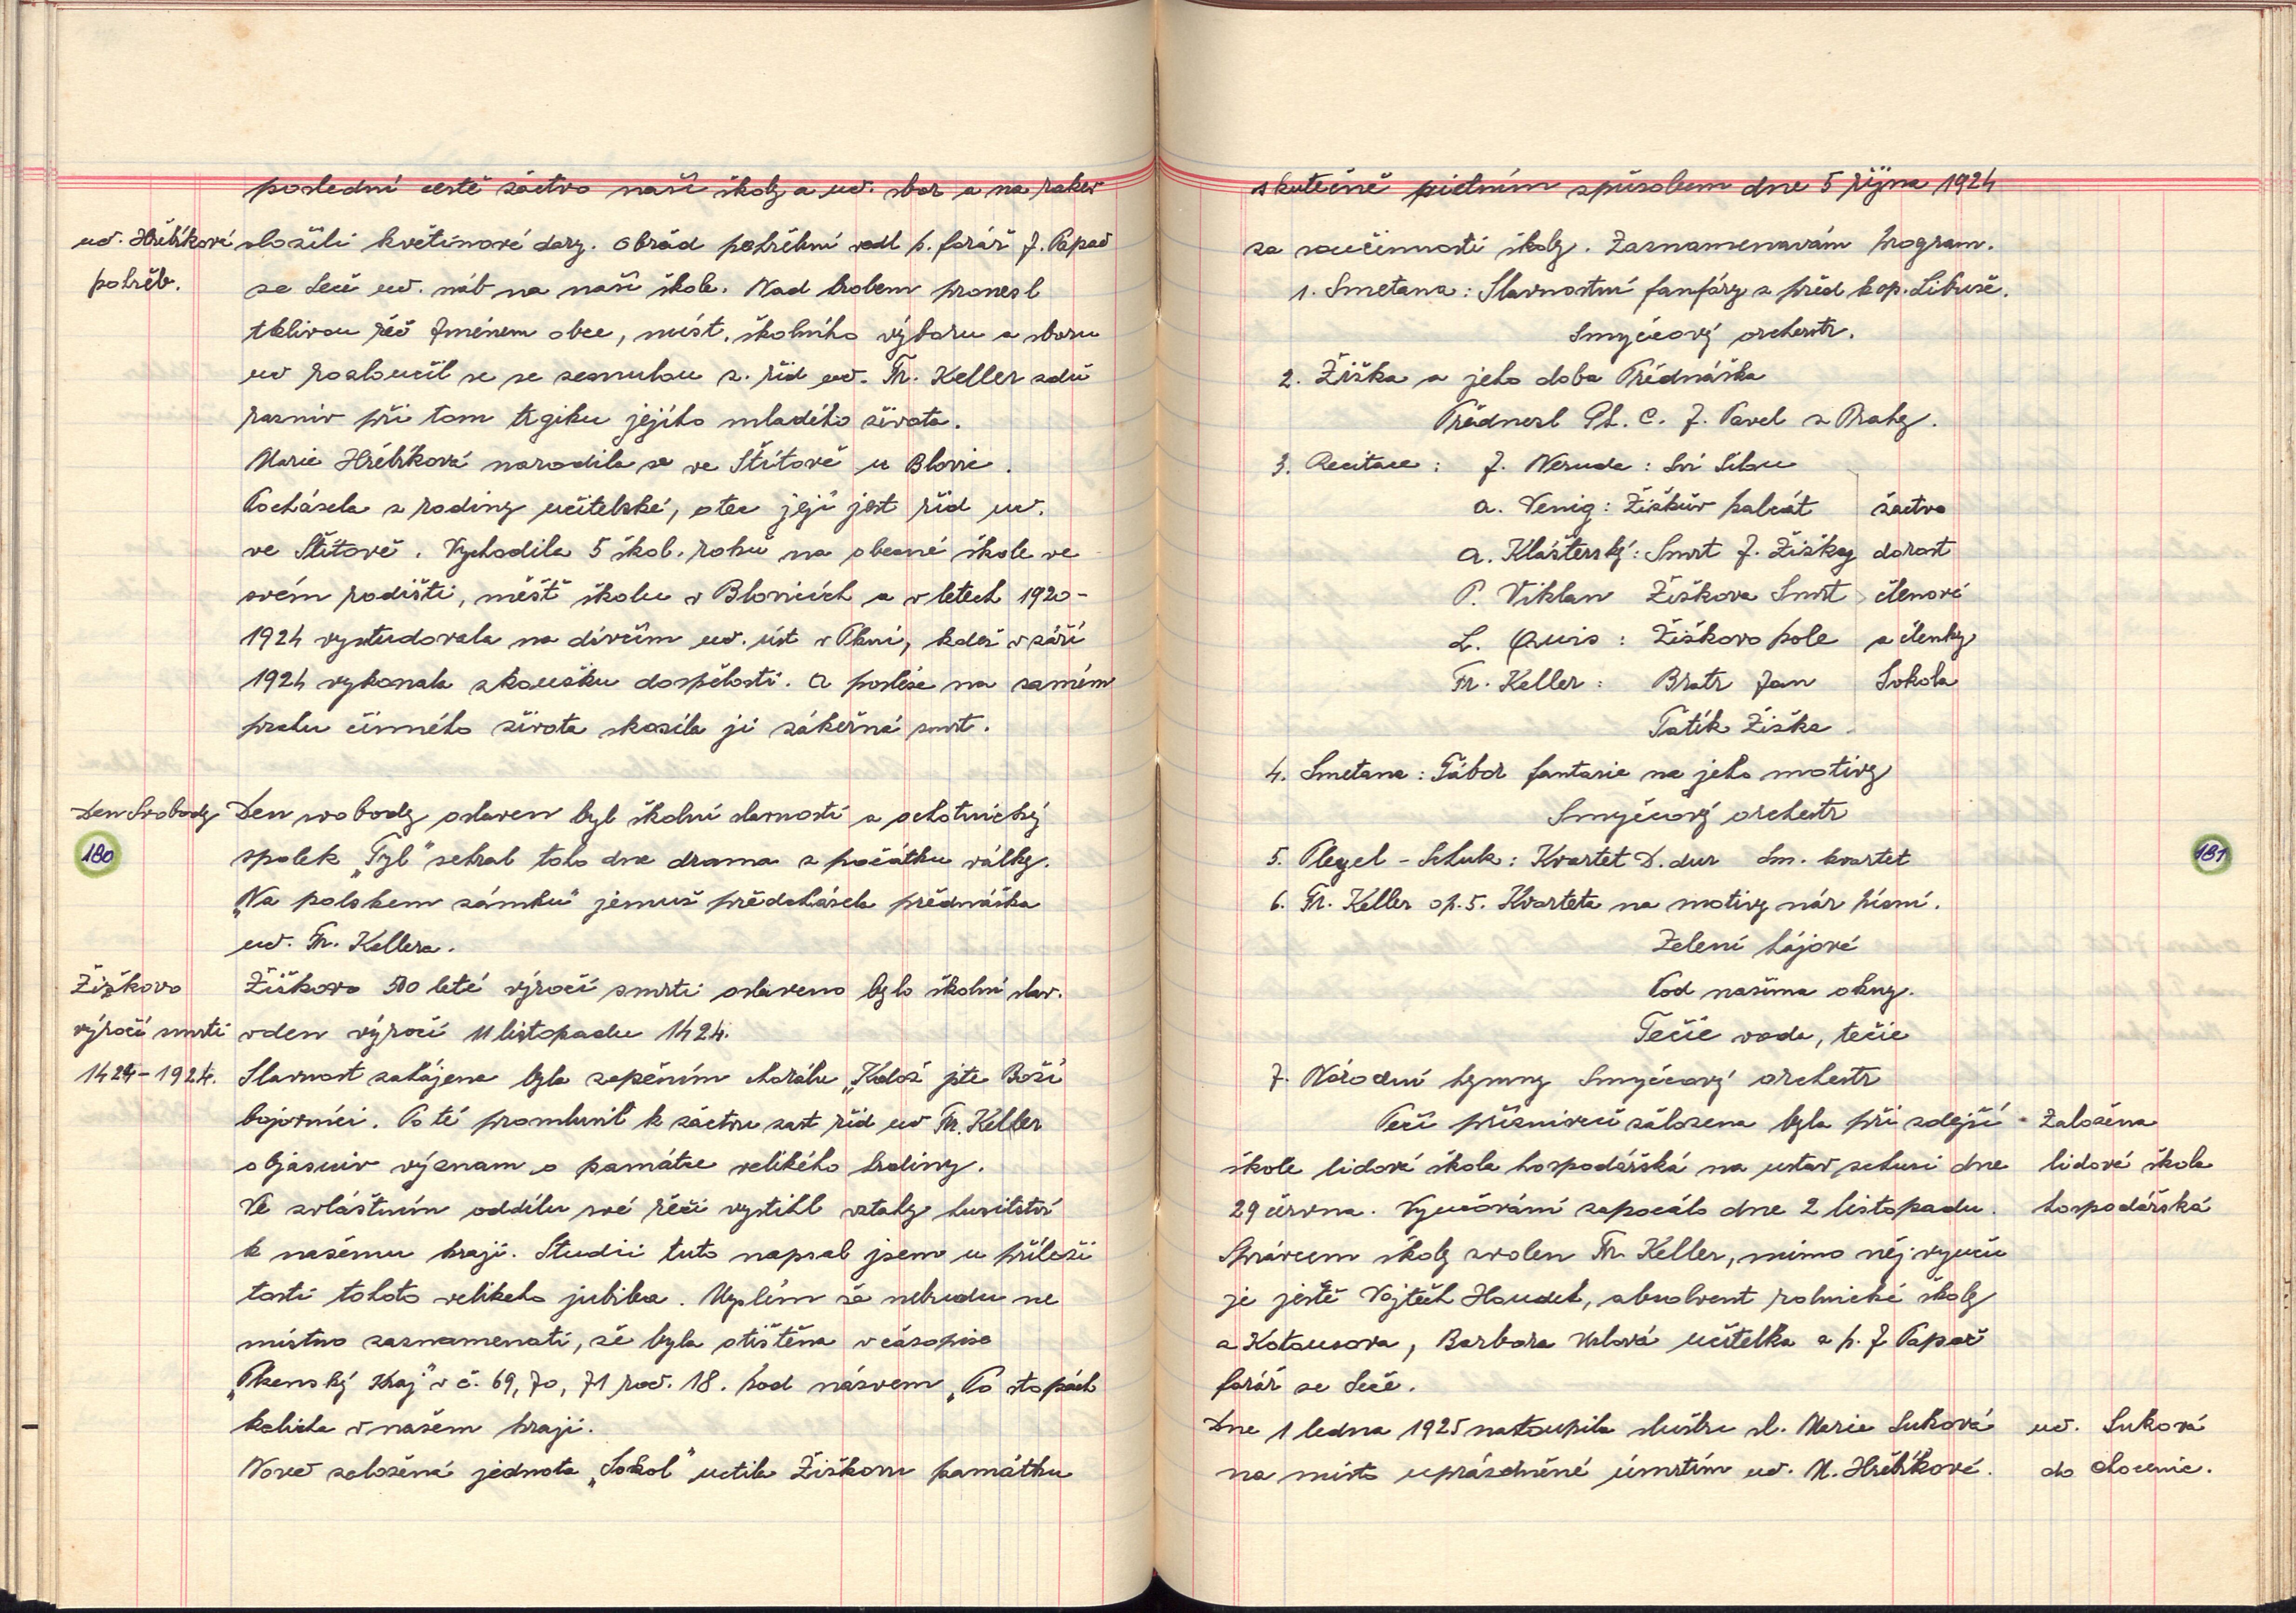 poslední cestě žáctvo naší školy a uč. sbor a na rakev
uč. Hřebíkové
potřeb.
složili květinové dary. Obřad pohřební vedl p. farář J. Papač
ze Seče uč. náb na naší škole. Nad hrobem pronesl
tklivou řeč Jménem obce, míst. školního výboru a sboru
uč rozloučil se se zesnulou z. říd uč. Fr. Keller zdů
razniv při tom trgiku jejího mladého života.
Marie Hřebíková narodila se ve Štítově u Blovic.
Pocházela z rodiny učitelské, otec její jest říd uč.
ve Štítově. Vychodila 5 škol. roků na obecné škole ve
svém rodišti, měšť školu v Blovicích a v letech 1920-
1924 vystudovala na dívčím uč. úst v Plzni, kdež v září
1924 vykonala zkoušku dospělosti. A posléze na samém
prahu činného života skosila ji zákeřná smrt.
Den Svobody
Den svobody oslaven byl školní slavností a ochotnický
180
spolek „Tyl" sehrál toho dne drama z počátku války.
„Na polském zámku" jemuž předcházela přednáška
uč. Fr. Kellera.
Žižkovo
výročí smrti
1424-1924.
Žižkovo 500 leté výročí smrti oslaveno bylo školní slav.
v den výročí 11 listopadu 1424.
Slavnost zahájena byla zapěním chorálu „Kdož jste Boží
bojovníci. Po té promluvil k žáctvu zast říd uč Fr. Keller
objasniv význam a památce velikého hrdiny.
Ve zvláštním oddílu své řeči vystihl vztahy husitství
k našemu kraji. Studii tuto napsal jsem u příleži
tosti tohoto velikeho jubilea. Myslím že nebudu ne
místno zaznamenati, že byla otištěna v časopise
„Plzenský Kraj" v č. 69, 70, 71 roč. 18. pod názvem „Po stopách
kalicha v našem kraji.
Nově založená jednota „Sokol" uctila Žižkovu památku
skutečně pietním způsobem dne 5 října 1924
za součinnosti školy. Zaznamenavám program.
1. Smetana: Slavnostní fanfáry z předh. k op. Libuše.
Smyčcový orchestr.
2. Žižka a jeho doba Přednáška
Přednesl Ph. C. J. Pavel z Prahy.
3. Recitace: J. Neruda: Sní Sibou
A. Venig: Žižkův palcát žactvo
A. Klášterský: Smrt J. Žižky dorost
P. Viklan Žižkova Smrt členové
L. Quis: Žižkovo pole a členky
Fr. Keller: Bratr Jan Sokola
Tatík Žižka
4. Smetana: Tábor fantasie na jeho motivy
Smyčcový orchestr
5. Pleyel - Schuk: Kvartet D. dur Sm. kvartet
6. Fr. Keller op. 5. Kvarteta na motivy nár písní.
Zelení hájové
Pod našima okny.
Tečie voda, tečie
7. Národní hymny Smyčcový orchestr
Péčí příznivců založena byla při zdejší
škole lidová škola hospodářská na ustav schusi dne
29 června. Vyučování započalo dne 2 listopadu.
Založena
lidová škola
hospodářská
Správcem školy zvolen Fr. Keller, mimo něj vyuču
je ještě Vojtěch Houdek, absolvent rolnické školy
a Kotousova, Barbora Uzlová učitelka a p. J Papač
farář ze Seče.
Dne 1 ledna 1925 nastoupila službu sl. Marie Suková
na místo uprázdněné úmrtím uč. M. Hřebíkové.
uč. Suková
do Chocenic.
181